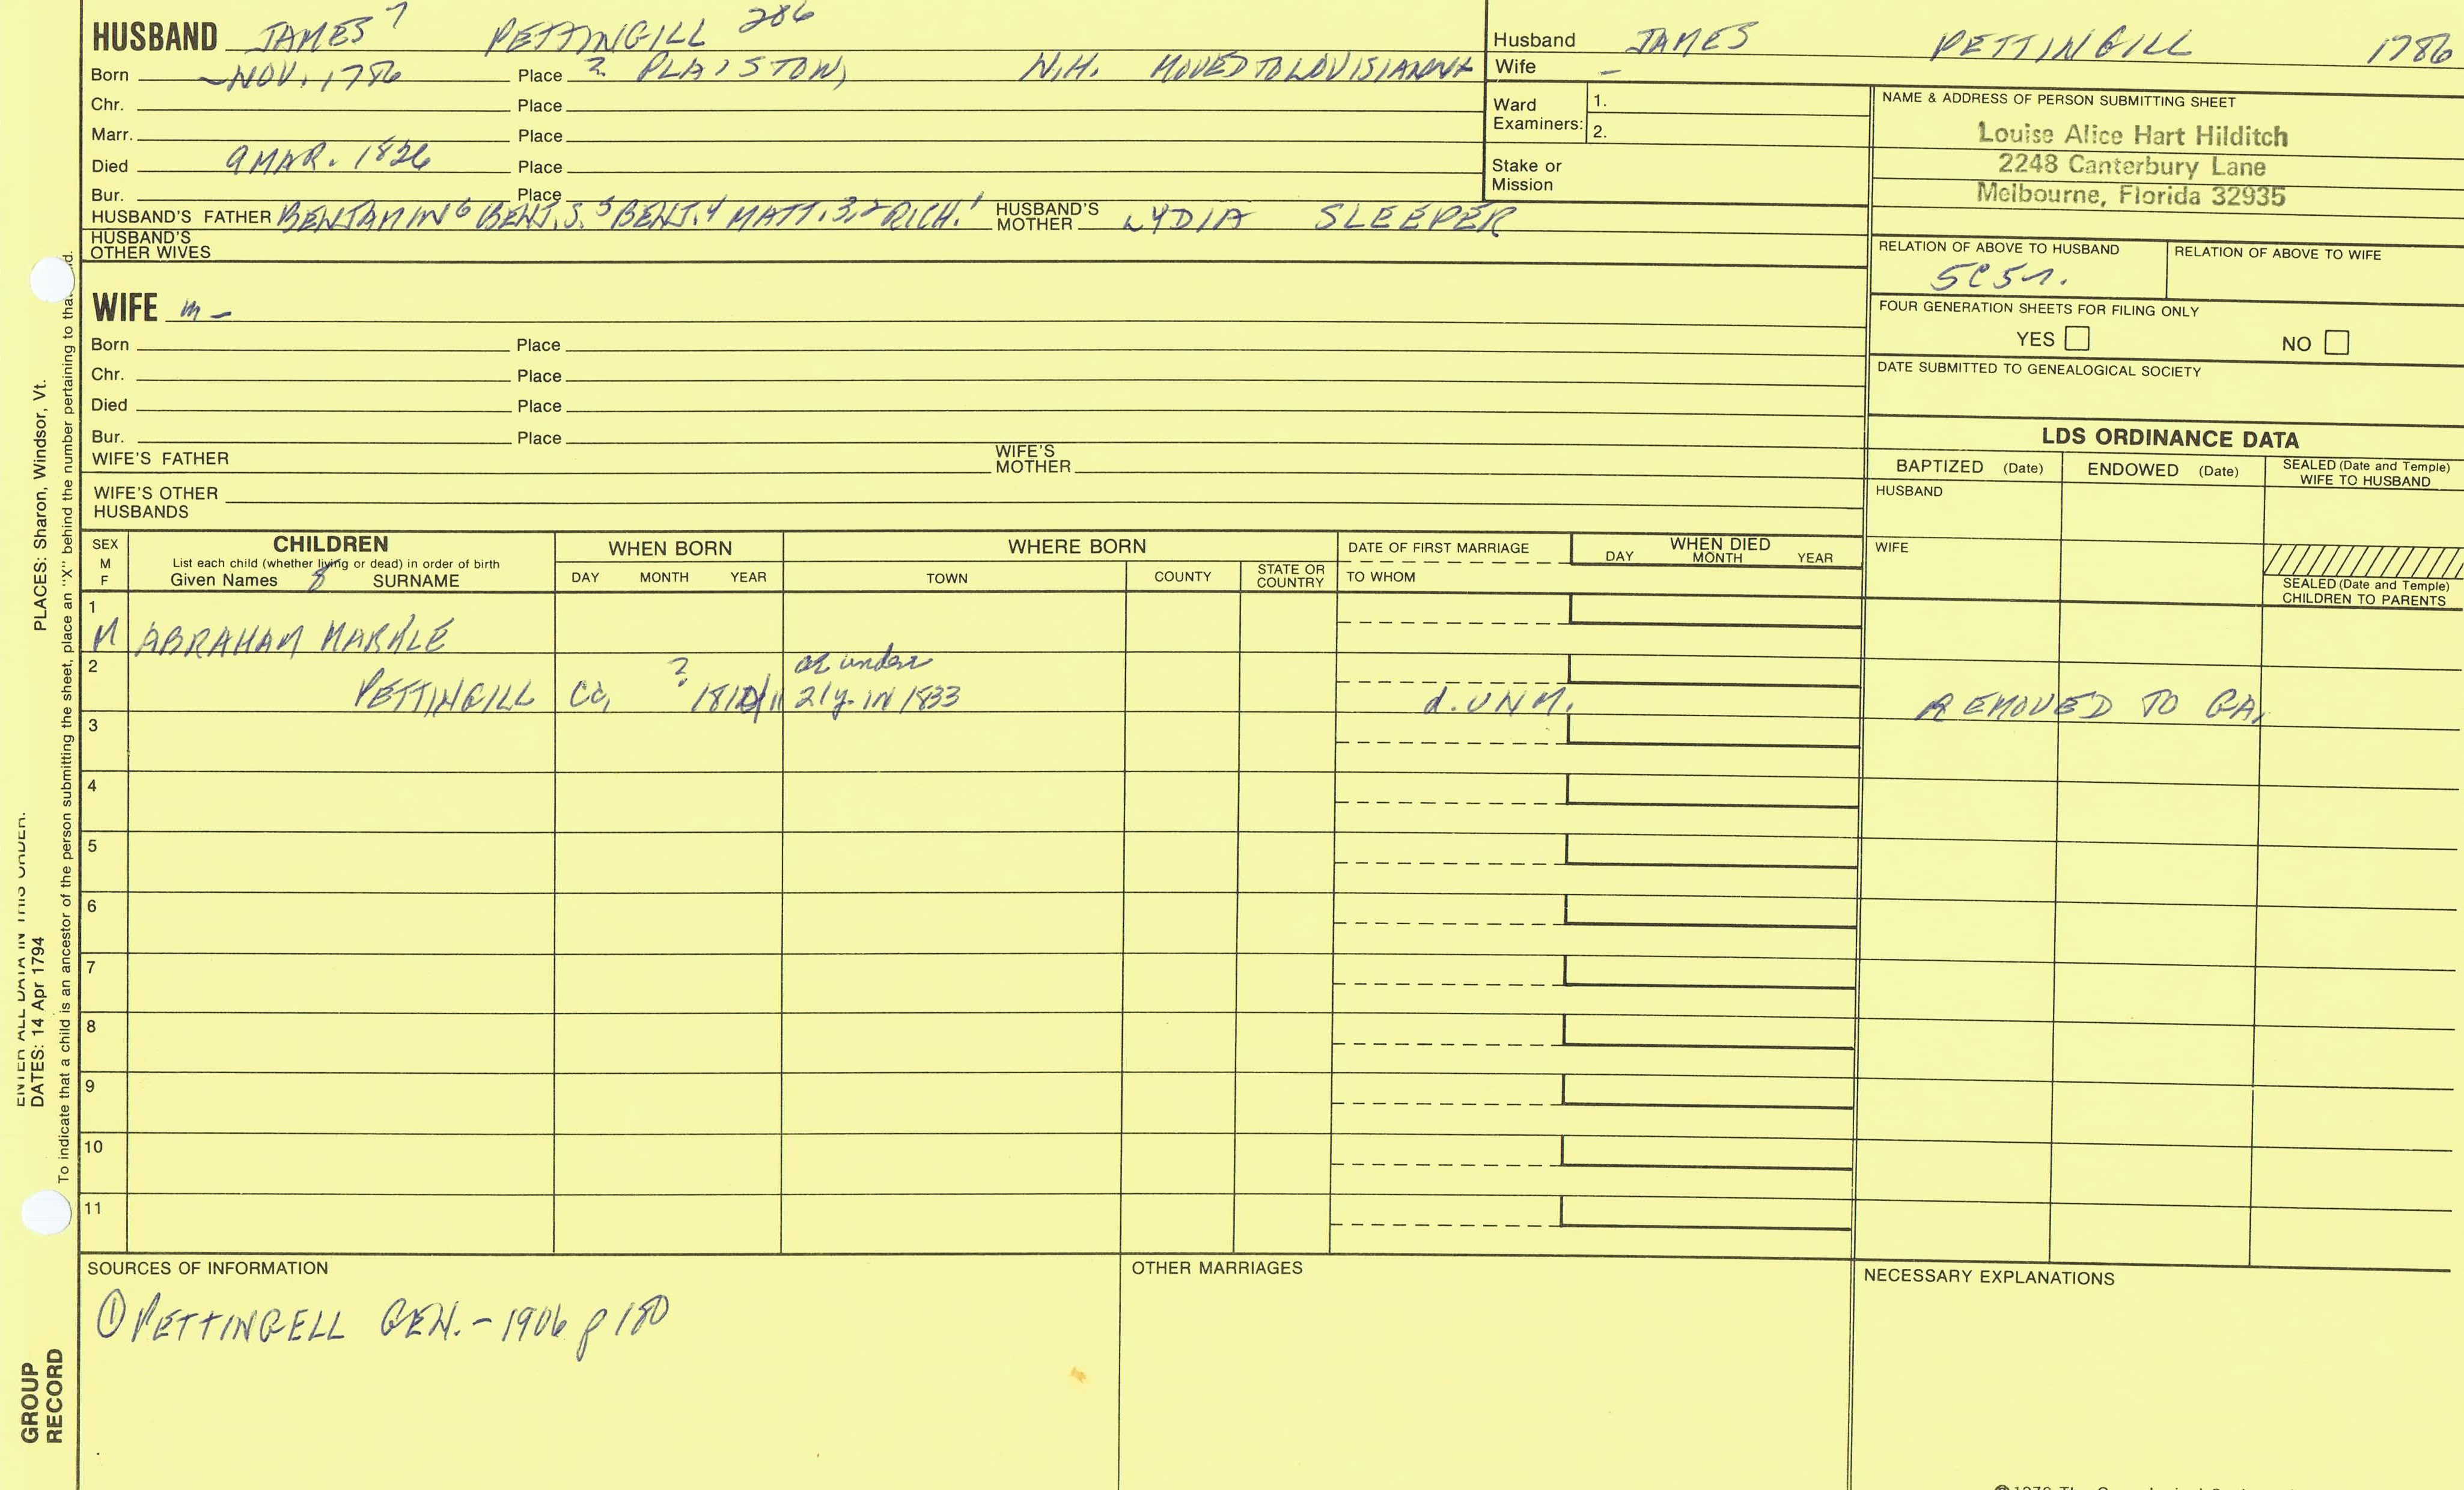 HUSBAND JAMES 7 PETTINGILL 286
Born -NOV. 1786 Place ? PLAISTOW, N.H. MOVED TO LOUISIANNA
Chr. Place
Marr. Place
Died 9 MAR. 1826 Place
Bur. Place
HUSBAND'S FATHER BENJAMIN 6 BENJ. S. 5 BENJ. 4 MATT. 3, 2 RICH. 1 HUSBAND'S MOTHER LYDIA SLEEPER
HUSBAND'S OTHER WIVES
Husband JAMES PETTINGILL 1786
Wife -
Ward Examiners: 1.
2.
Stake or Mission
NAME & ADDRESS OF PERSON SUBMITTING SHEET
Louise Alice Hart Hilditch
2248 Canterbury Lane
Melbourne, Florida 32935
RELATION OF ABOVE TO HUSBAND RELATION OF ABOVE TO WIFE
5C5r.
FOUR GENERATION SHEETS FOR FILING ONLY
YES NO
DATE SUBMITTED TO GENEALOGICAL SOCIETY
WIFE m -
Born Place
Chr. Place
Died Place
Bur. Place
WIFE'S FATHER WIFE'S MOTHER
WIFE'S OTHER HUSBANDS
LDS ORDINANCE DATA
BAPTIZED (Date) ENDOWED (Date) SEALED (Date and Temple) WIFE TO HUSBAND
HUSBAND
WIFE
SEALED (Date and Temple)
CHILDREN TO PARENTS
SEX M F
CHILDREN
List each child (whether living or dead) in order of birth
Given Names 8 SURNAME
WHEN BORN
DAY MONTH YEAR
WHERE BORN
TOWN COUNTY STATE OR COUNTRY
DATE OF FIRST MARRIAGE
TO WHOM
WHEN DIED
DAY MONTH YEAR
1
M ABRAHAM MARKLE
2 ? or under
PETTINGILL Ca, 21y. IN 1833 d. UNM. REMOVED TO GA.
3
4
5
6
7
8
9
10
11
SOURCES OF INFORMATION
① PETTINGELL GEN. - 1906 p 180
OTHER MARRIAGES
NECESSARY EXPLANATIONS
PLACES: Sharon, Windsor, Vt.
DATES: 14 Apr 1794
ENTER ALL DATA IN THIS ORDER:
To indicate that a child is an ancestor of the person submitting the sheet, place an "X" behind the number pertaining to that
GROUP
RECORD